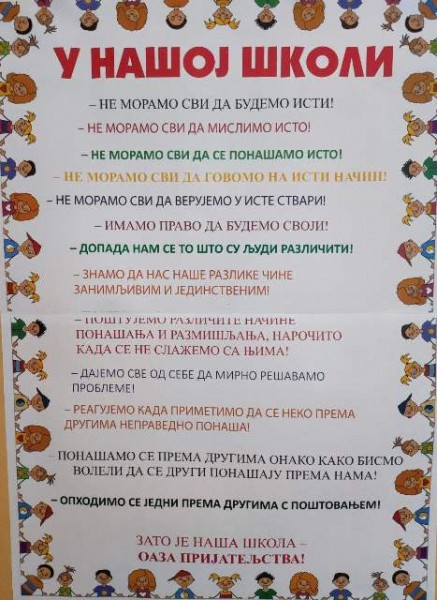 У НАШОЈ ШКОЛИ
– НЕ МОРАМО СВИ ДА БУДЕМО ИСТИ!
– НЕ МОРАМО СВИ ДА МИСЛИМО ИСТО!
– НЕ МОРАМО СВИ ДА СЕ ПОНАШАМО ИСТО!
– НЕ МОРАМО СВИ ДА ГОВОМО НА ИСТИ НАЧИН!
– НЕ МОРАМО СВИ ДА ВЕРУЈЕМО У ИСТЕ СТВАРИ!
– ИМАМО ПРАВО ДА БУДЕМО СВОЈИ!
– ДОПАДА НАМ СЕ ТО ШТО СУ ЉУДИ РАЗЛИЧИТИ!
– ЗНАМО ДА НАС НАШЕ РАЗЛИКЕ ЧИНЕ
ЗАНИМЉИВИМ И ЈЕДИНСТВЕНИМ!
– ПОШТУЈЕМО РАЗЛИЧИТЕ НАЧИНЕ
ПОНАШАЊА И РАЗМИШЉАЊА, НАРОЧИТО
КАДА СЕ НЕ СЛАЖЕМО СА ЊИМА!
– ДАЈЕМО СВЕ ОД СЕБЕ ДА МИРНО РЕШАВАМО
ПРОБЛЕМЕ!
– РЕАГУЈЕМО КАДА ПРИМЕТИМО ДА СЕ НЕКО ПРЕМА
ДРУГИМА НЕПРАВЕДНО ПОНАША!
– ПОНАШАМО СЕ ПРЕМА ДРУГИМА ОНАКО КАКО БИСМО
ВОЛЕЛИ ДА СЕ ДРУГИ ПОНАШАЈУ ПРЕМА НАМА!
– ОПХОДИМО СЕ ЈЕДНИ ПРЕМА ДРУГИМА С ПОШТОВАЊЕМ!
ЗАТО ЈЕ НАША ШКОЛА –
ОАЗА ПРИЈАТЕЉСТВА!